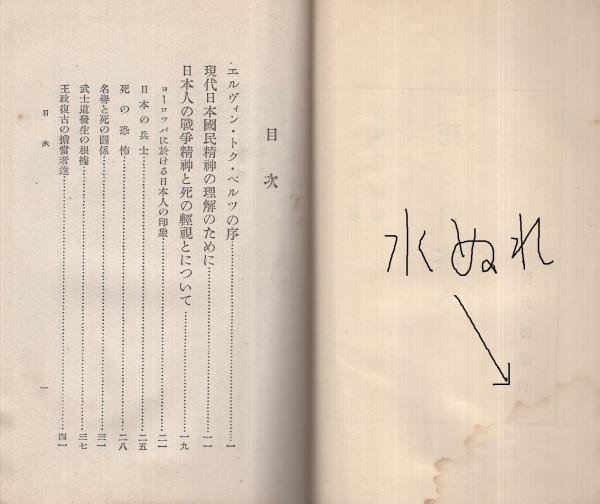 水ぬれ
目次
エルヴィン・トク・ベルツの序……一
現代日本國民精神の理解のために……一一
日本人の戰爭精神と死の輕視とについて……一九
ヨーロッパに於ける日本人の印象……二一
日本の兵士……二五
死の恐怖……二八
名譽と死の關係……三一
武士道發生の根據……三七
王政復古の擔當者達……四一
目次
一